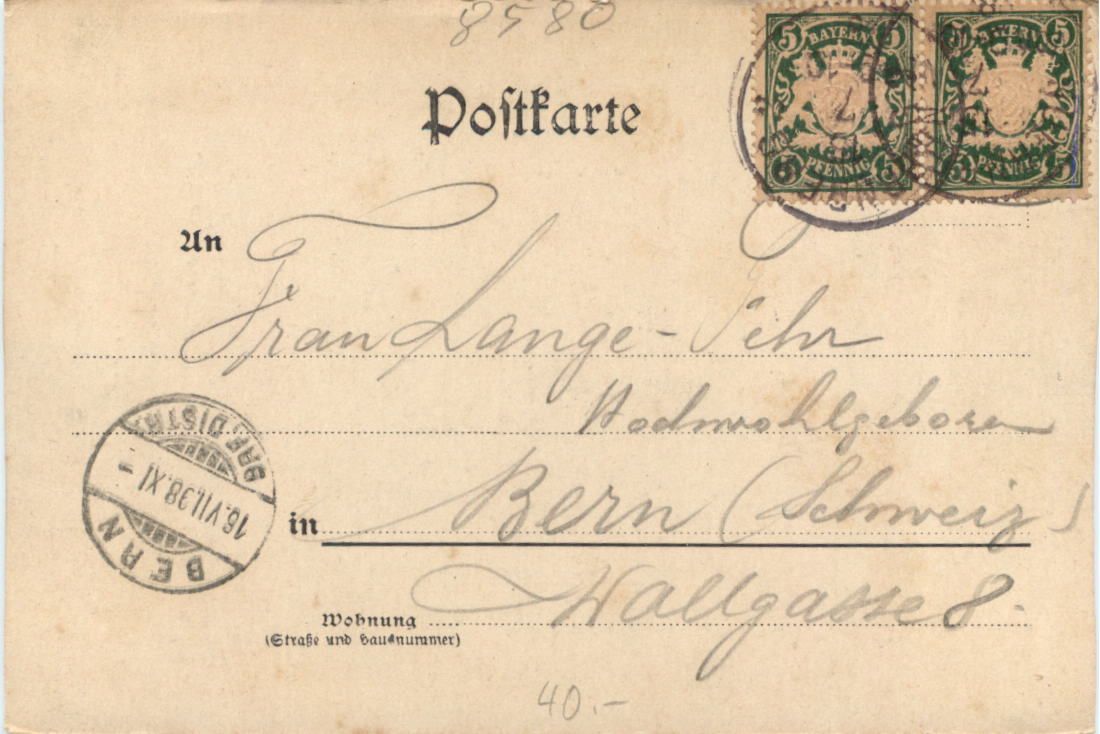 8580
Postkarte
5 BAYERN 5
5 PFENNIG 5
5 BAYERN 5
5 PFENNIG 5
An
Frau Lange-Fehr
Hochwohlgeboren
BRF. DISTR.
16.VII.98.XI-
BERN
in Bern (Schweiz)
Wallgasse 8.
Wohnung
(Straße und Hausnummer)
40.-